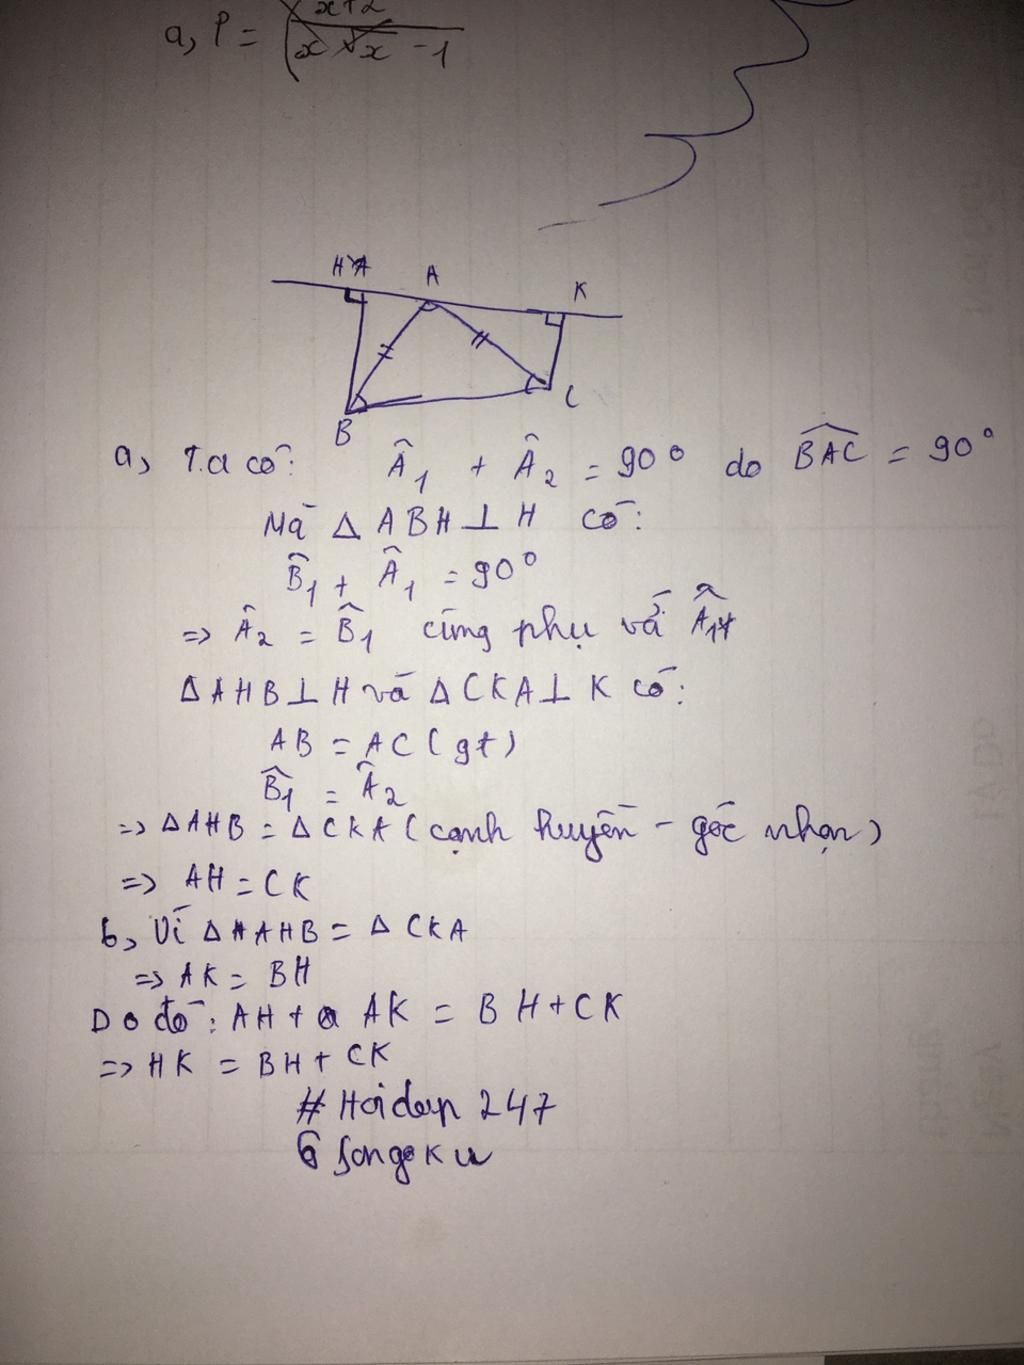 a, P = ( x+2 / x√x - 1
H A K
B C
a, Ta có: Â₁ + Â₂ = 90° do BAC = 90°
Mà Δ ABH ⊥ H có:
B̂₁ + Â₁ = 90°
=> Â₂ = B̂₁ cùng phụ với Â₁
Δ AHB ⊥ H và Δ CKA ⊥ K có:
AB = AC (gt)
B̂₁ = Â₂
=> Δ AHB = Δ CKA (cạnh huyền - góc nhọn)
=> AH = CK
b, Vì Δ AHB = Δ CKA
=> AK = BH
Do đó: AH + AK = BH + CK
=> HK = BH + CK
# Hoidap 247
Songoku